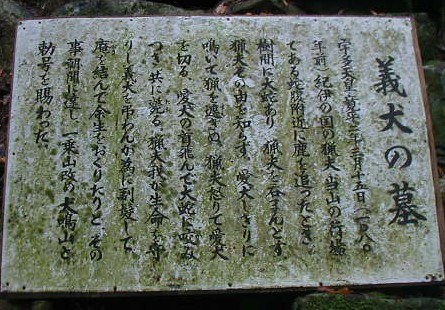 義犬の墓
宇多天皇寛平二年三月十五日(一一〇八
年前)紀伊の国の猟夫、当山の行場
である蛇腹附近に鹿を追ったとき、
樹間に大蛇あり、猟夫を呑まんとす。
猟夫その由を知らず、愛犬しきりに
鳴いて猟を遅さぬ。猟夫怒りて愛犬
を切る。愛犬の首飛んで大蛇に咬み
つき、共に斃る。猟夫我が生命を守
りし義犬を弔わんが為に剃髪して、
庵を結んで余生をおくりたりと、その
事朝聞に達し、一乗山改め犬鳴山と
勅号を賜わった。